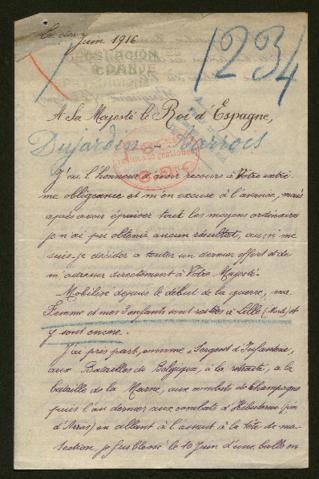 Juin 1916
1234
A Sa Majesté le Roi d'Espagne,
Dujardin - Barrois
J'ai l'honneur d'avoir recours à Votre extrê
me obligeance et m'en excuse à l'avance, mais
après avoir épuiser tout les moyens ordinaires
je n'ai pu obtenir aucun résultat, aussi me
suis-je décider à tenter un dernier effort et de
m'adresser directement à Votre Majesté.
Mobilisé depuis le début de la guerre, ma
Femme et mes enfants sont restées à Lille (Nord) et
y sont encore.
J'ai pris part, comme Sergent d'Infanterie,
aux Batailles de Belgique, à la retraite, à la
bataille de la Marne, aux combats de Champagne
puis l'an dernier aux combats d'Hébuterne (près
d'Arras) en allant à l'assaut à la tête de ma
section, je fus blessé le 10 Juin d'une balle en